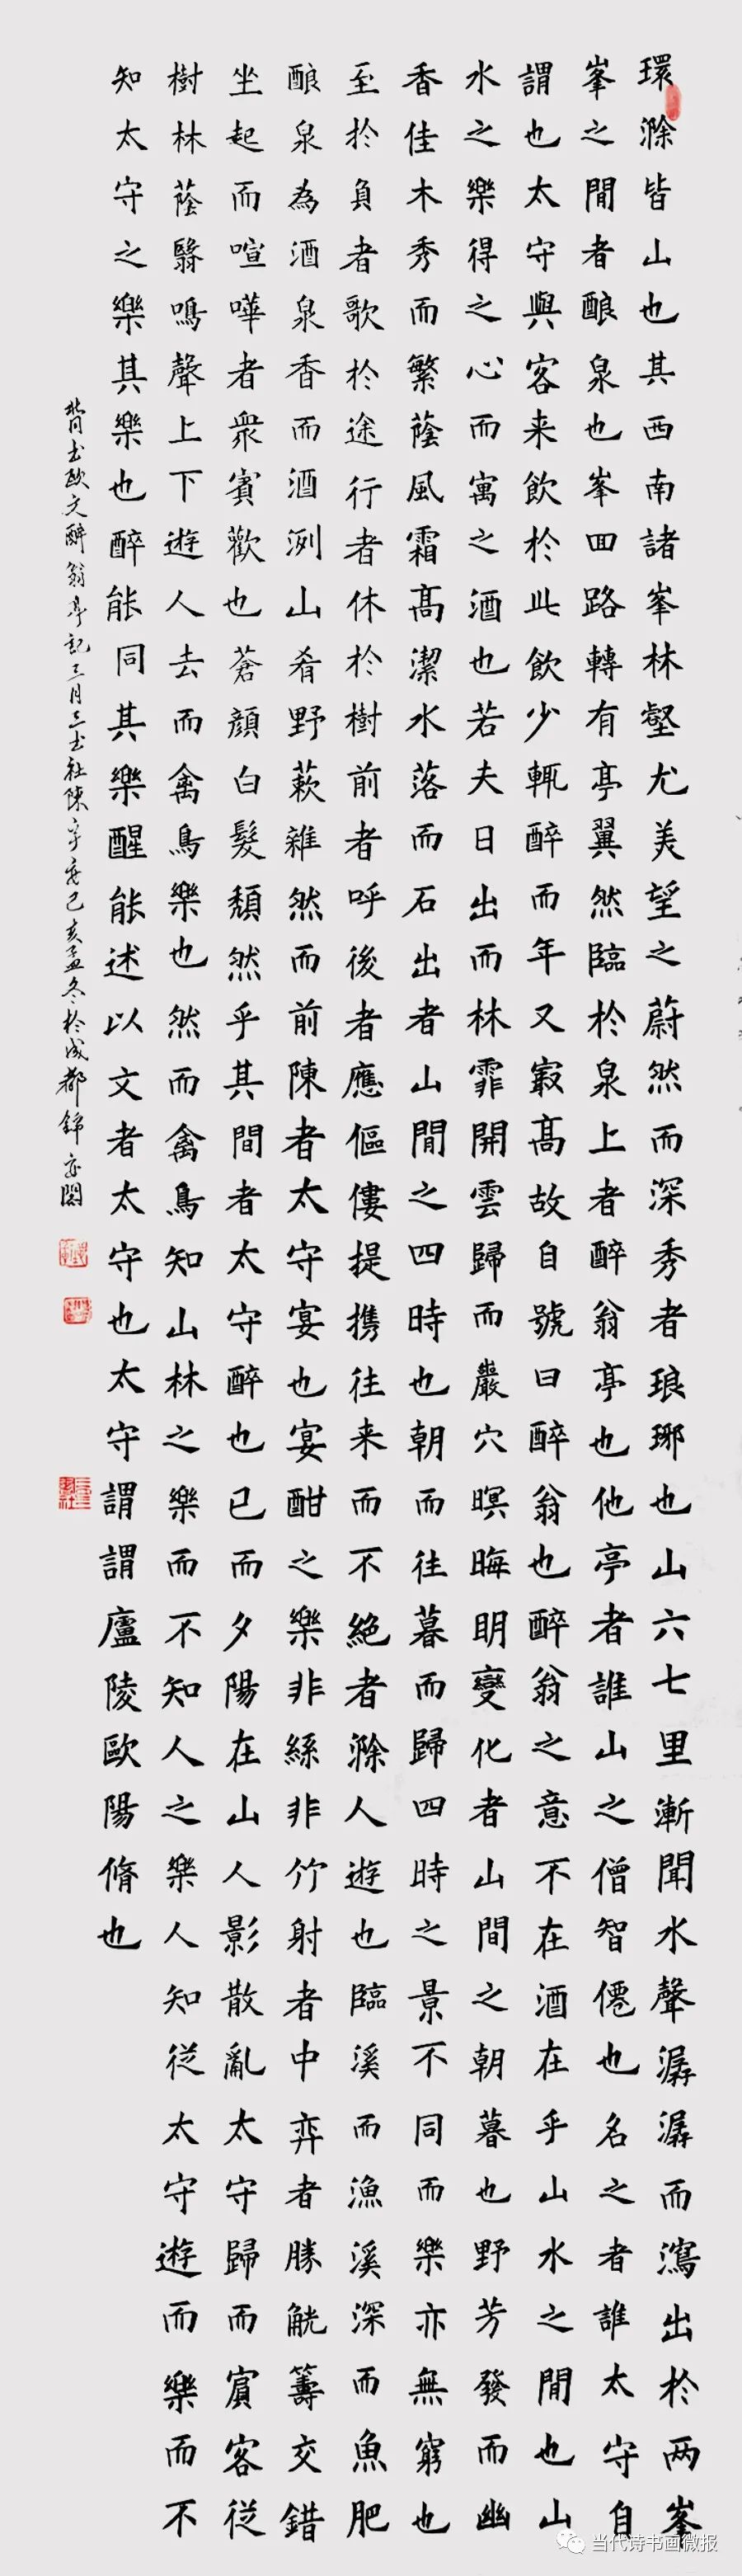 環滁皆山也其西南諸峯林壑尤美望之蔚然而深秀者琅琊也山六七里漸聞水聲潺潺而瀉出於两峯
峯之閒者酿泉也峯回路轉有亭翼然臨於泉上者醉翁亭也他亭者誰山之僧智僊也名之者誰太守自
謂也太守與客来飲於此飲少輒醉而年又㝡高故自號曰醉翁也醉翁之意不在酒在乎山水之閒也山
水之樂得之心而寓之酒也若夫日出而林霏開雲歸而巖穴暝晦明變化者山間之朝暮也野芳發而幽
香佳木秀而繁蔭風霜高潔水落而石出者山閒之四時也朝而往暮而歸四時之景不同而樂亦無窮也
至於負者歌於途行者休於樹前者呼後者應傴僂提携往来而不絶者滁人遊也臨溪而漁溪深而魚肥
酿泉為酒泉香而酒洌山肴野蔌雜然而前陳者太守宴也宴酣之樂非絲非竹射者中弈者勝觥籌交錯
坐起而喧嘩者衆賓歡也蒼顔白髮頹然乎其間者太守醉也已而夕陽在山人影散亂太守歸而賓客従
樹林蔭翳鳴聲上下遊人去而禽鳥樂也然而禽鳥知山林之樂而不知人之樂人知從太守遊而樂而不
知太守之樂其樂也醉能同其樂醒能述以文者太守也太守謂謂廬陵歐陽脩也
書欧文醉翁亭記三月三書社陳己亥孟冬於成都錦亦閣
当代诗书画微报